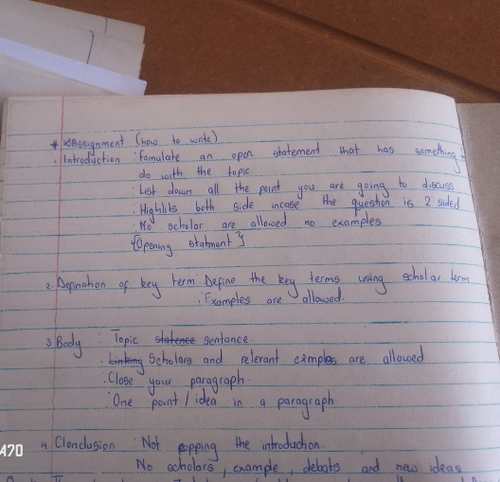 * Assignment (how to write)
. Introduction : Fomulate an open statement that has something
do with the topic
: List down all the point you are going to discuss
: Highlits both side incase the question is 2 sided
: No scholar are allowed no examples
{Opening statment}
2. Defination of key term : Define the key terms using scholar term
. Examples are allowed.
3. Body : Topic statence sentance
: Linking Scholars and relevant exmples are allowed
: Close your paragraph
: One point / idea in a paragraph
4. Clonclusion : Not copping the introduction.
No scholars, example, debats and new ideas
470